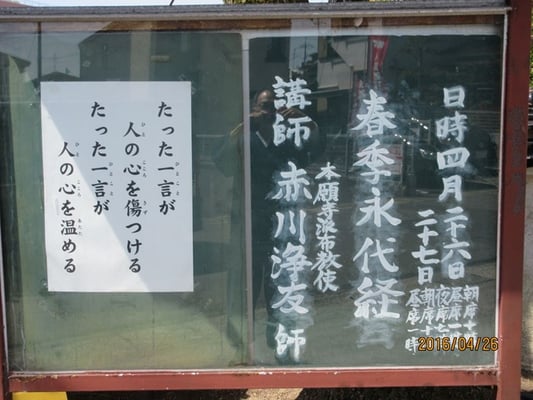 日時四月二十六日
二十七日
朝席十
昼席一
夜席七
朝席十
昼席一時
春季永代経
本願寺派布教使
講師 赤川浄友 師
たった一言が
人の心を傷つける
たった一言が
人の心を温める
2016/04/26